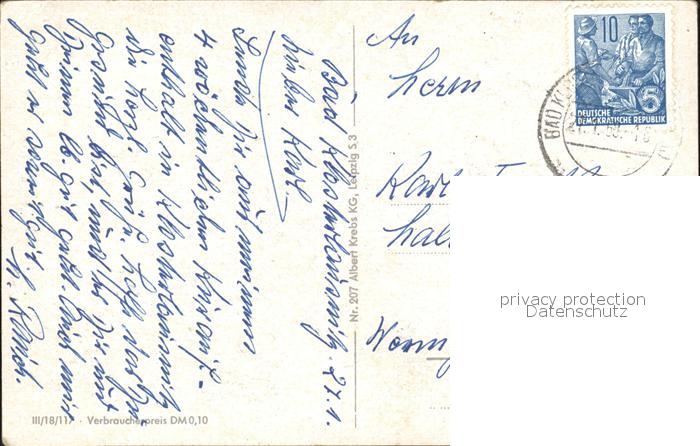 Bad Klosterlausnitz. 27.1.
Lieber Karl –
Sende Dir auf meinem
4 wöchentlichen Kurauf-
enthalt in Klosterlausnitz
die herzl. Grüße. Hoffe das Du
gesund bist, und es Dir mit
gut geht. Auch mir
geht es soweit gut.
Nr. 207 Albert Krebs KG, Leipzig S 3
III/18/117 · Verbraucherpreis DM 0,10
An
Herrn
Karl
Hall
10
DEUTSCHE
DEMOKRATISCHE REPUBLIK
5
BAD K
privacy protection
Datenschutz